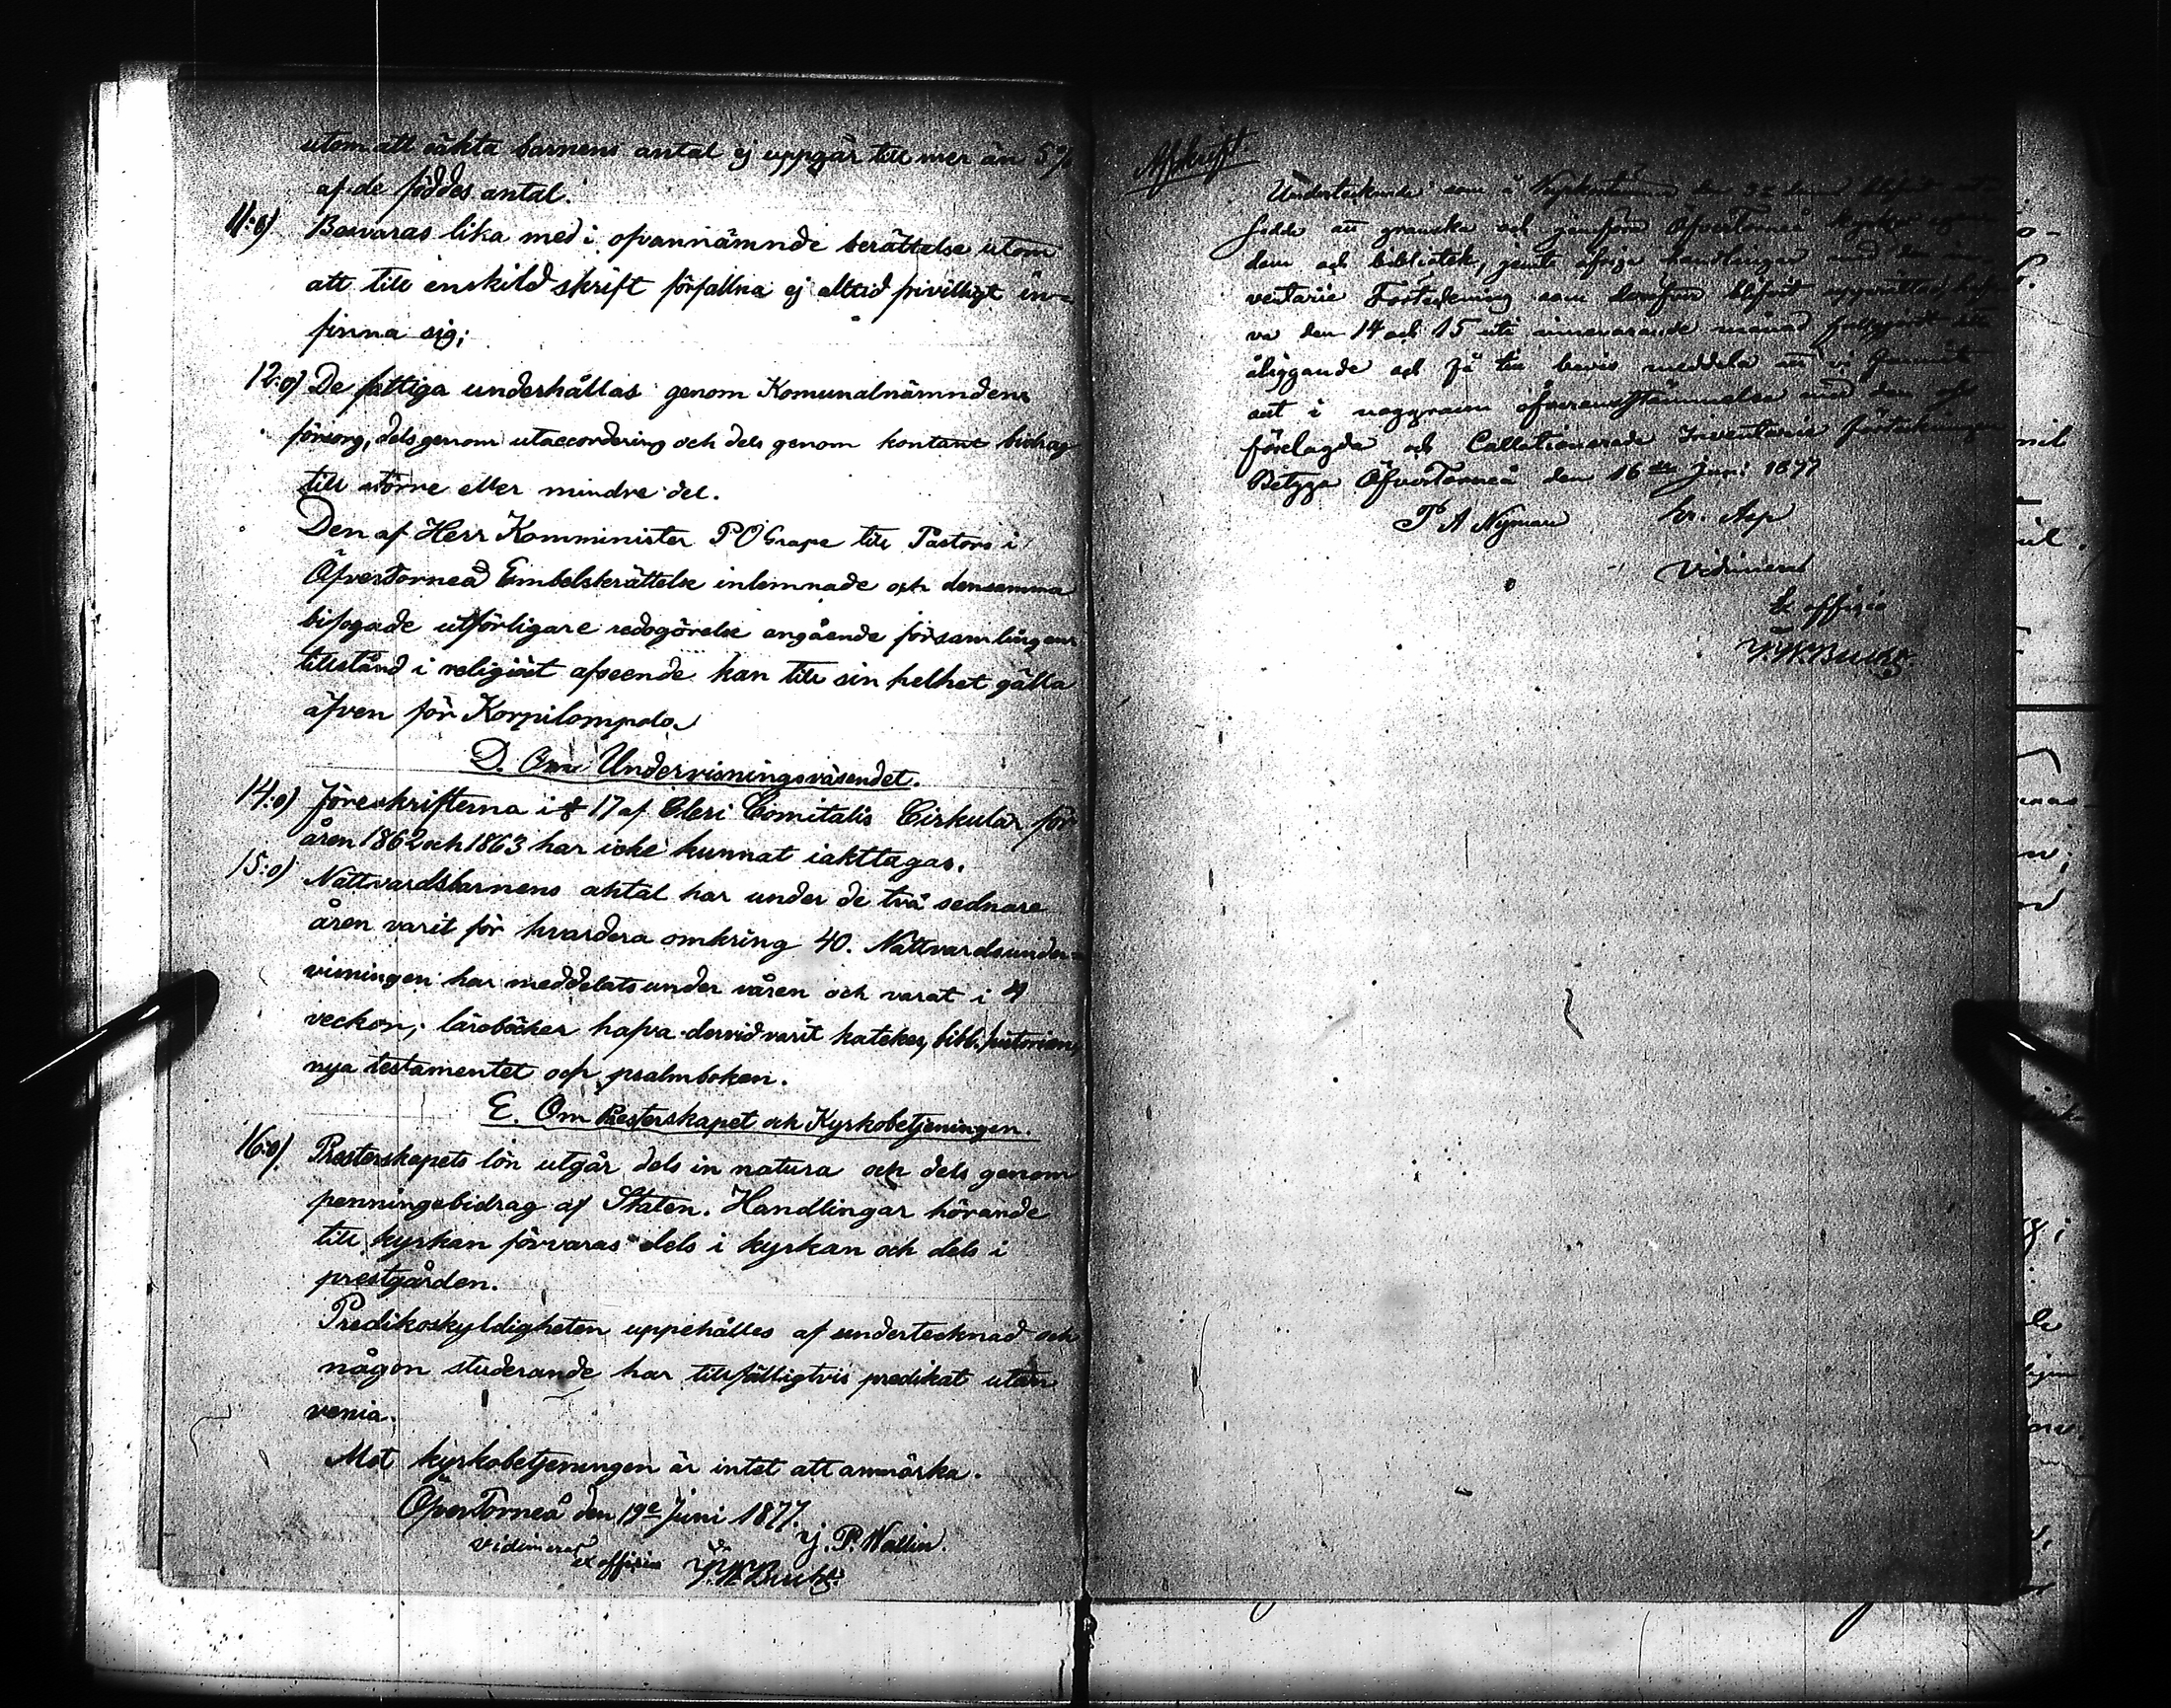 utom att oäkta barnens antal ej uppgår till mer än 5 %
af de föddes antal.
11:o) Besvaras lika med i ofvannämnde berättelse utom
att till enskild skrift förfallna ej alltid frivilligt in-
finna sig;
12:o) De fattiga underhållas genom Komunalnämndens
försorg, dels genom utaccordering och dels genom kontant bidrag
till större eller mindre del.
Den af Herr Komminister P O Grape till Pastorn i
Öfvertorneå Embetsberättelse inlemnade och densamma
bifogade utförligare redogörelse angående församlingens
tillstånd i religiöst afseende kan till sin helhet gälla
äfven för Korpilompolo.
D. Om Undervisningsväsendet.
14:o) Föreskrifterna i § 17 af Cleri Comitialis Cirkulär för
åren 1862 och 1863 har icke kunnat iakttagas.
15:o) Nattvardsbarnens antal har under de två sednare
åren varit för hvardera omkring 40. Nattvardsunder-
visningen har meddelats under våren och varat i 4
veckor; läroböcker hafva dervid varit kateches, bibl. historien,
nya testamentet och psalmboken.
E. Om Presterskapet och Kyrkobetjeningen.
16:o) Presterskapets lön utgår dels in natura och dels genom
penningebidrag af Staten. Handlingar hörande
till kyrkan förvaras dels i kyrkan och dels i
prestgården.
Predikoskyldigheten uppehålles af undertecknad och
någon studerande har tillfälligtvis predikat utan
venia.
Mot kyrkobetjeningen är intet att anmärka.
Öfvertorneå den 19e Juni 1877.
J. P. Wallin.
Vidimerat
ex officio
Afskrift.
Undertecknade som å Kyrkostämma den
sedde att granska och jemföra Öfvertorneå kyrkas egen
dom och bibliotek, jemte öfriga handlingar med den in-
ventarie Förteckning som deröfver blifvit upprättad, haf
va den 14 och 15 uti innevarande månad fullgjort
åliggande och få till bevis meddela att vi funnit
allt i noggrann öfverensstämmelse med den oss
förelagda och Collationerade Inventarie förteckningen
Betyga Öfvertorneå den 16de Juni 1877
P A Nyman
Asp
Vidimerat
Ex officio